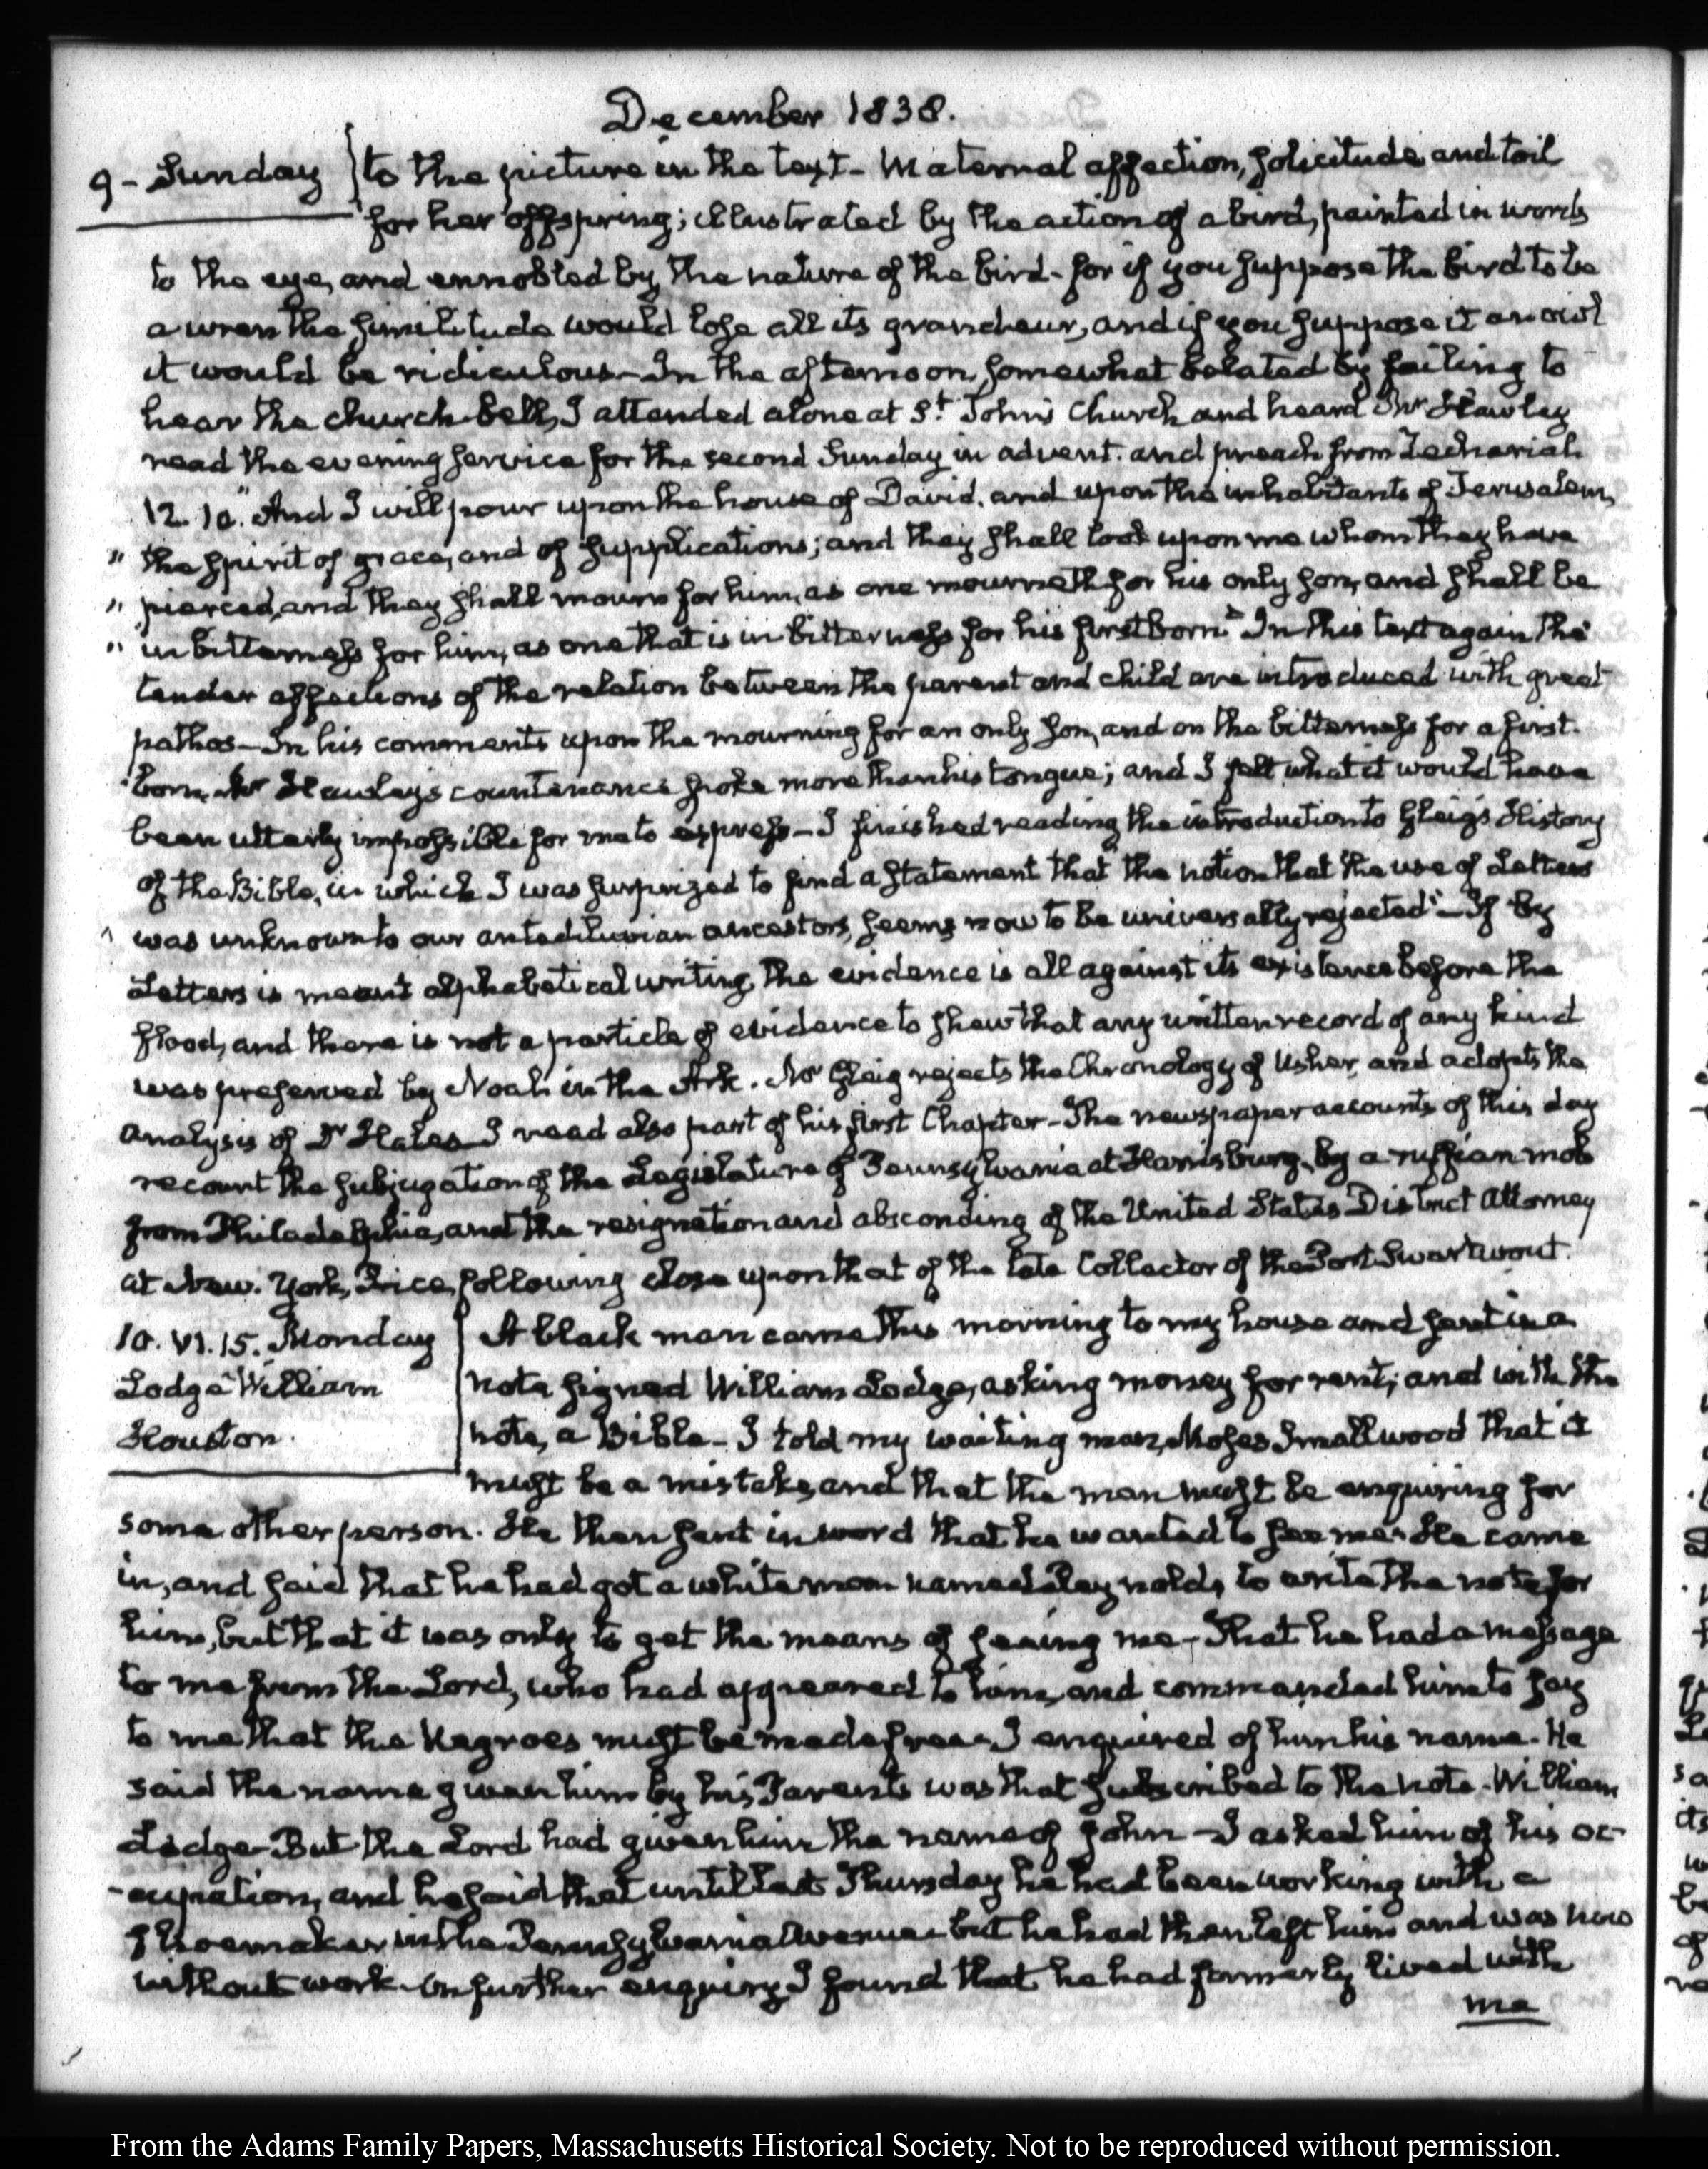 December 1838.
9 - Sunday } to the picture in the text - Maternal affection, solicitude and toil
for her offspring; illustrated by the action of a bird, painted in words
to the eye, and ennobled by the nature of the bird - for if you suppose the bird to be
a wren the similitude would lose all its grandeur, and if you suppose it an owl
it would be ridiculous - In the afternoon, somewhat belated by failing to
hear the church-bell, I attended alone at St. John's Church and heard Mr Hawley
read the evening service for the second Sunday in advent. and preach from Zechariah
12. 10. "And I will pour upon the house of David, and upon the inhabitants of Jerusalem,
" the spirit of grace, and of supplications; and they shall look upon me whom they have
" pierced, and they shall mourn for him, as one mourneth for his only son, and shall be
" in bitterness for him, as one that is in bitterness for his firstborn" In this text again the
tender affections of the relation between the parent and child are introduced with great
pathos - In his comments upon the mourning for an only son, and on the bitterness for a first-
born, Mr Hawley's countenance spoke more than his tongue; and I felt what it would have
been utterly impossible for me to express - I finished reading the introduction to Gleig's History
of the Bible, in which I was surprized to find a statement that the notion that the use of Letters
" was unknown to our antediluvian ancestors, seems now to be universally rejected" - If by
Letters is meant alphabetical writing, the evidence is all against its existence before the
flood, and there is not a particle of evidence to shew that any written record of any kind
was preserved by Noah in the Ark. Mr Gleig rejects the Chronology of Usher, and adopts the
analysis of Dr Hales - I read also part of his first Chapter - The newspaper accounts of this day
recount the subjugation of the Legislature of Pennsylvania at Harrisburg, by a ruffian mob
from Philadelphia, and the resignation and absconding of the United States District Attorney
at New-York, Price, following close upon that of the late Collector of the Port Swartwout.
10. VI. 15. Monday
Lodge William
Houston.
A black man came this morning to my house and sent in a
note signed William Lodge, asking money for rent; and with the
note, a Bible - I told my waiting man, Moses Smallwood that it
must be a mistake, and that the man must be enquiring for
some other person. He then sent in word that he wanted to see me. He came
in, and said that he had got a white man named Reynolds, to write the note for
him, but that it was only to get the means of seeing me - That he had a message
to me from the Lord, who had appeared to him, and commanded him to say
to me that the Negroes must be made free - I enquired of him his name. He
said the name given him by his Parents was that subscribed to the note - William
Lodge - But the Lord had given him the name of John - I asked him of his oc-
-cupation, and he said that until last Thursday he had been working with a
shoemaker in the Pennsylvania Avenue - but he had then left him and was now
without work - On further enquiry I found that he had formerly lived with
me
From the Adams Family Papers, Massachusetts Historical Society. Not to be reproduced without permission.